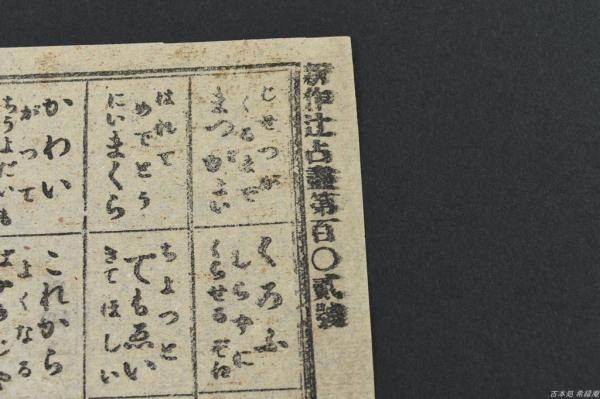 新作辻占畫第百〇貳號
じせつが
くるまで
まつがよい
はれて
めでとう
にいまくら
かわい
がつて
ちうよだいも
くろふ
しらずに
くらせる
ちよつと
でも゙ゑい
きてほしい
これから
よくなる
古本処 希縁庵